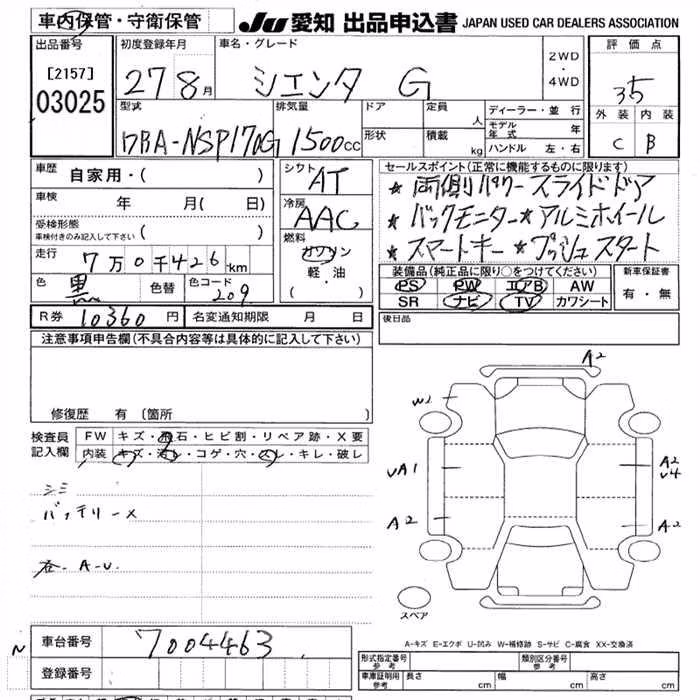 車内保管・守衛保管
JU 愛知 出品申込書 JAPAN USED CAR DEALERS ASSOCIATION
出品番号
[2157]
03025
初度登録年月
27 8月
車名・グレード
シエンタ G
2WD
・
4WD
評価点
35
外装 内装
C B
型式
DBA-NSP170G
排気量
1500cc
ドア
形状
定員 人
積載 kg
ディーラー・並行
モデル年式 年
ハンドル 左・右
車歴
自家用・( )
車検 年 月( 日)
受検形態
車検付きのみ記入して下さい ( )
走行 7万0千426km
色 黒 色替 色コード 209
シフト
AT
冷房
AAC
燃料
ガソリン
軽・油
( )
セールスポイント(正常に機能するものに限ります)
★ 両側パワースライドドア
★ バックモニター★アルミホイール
★ スマートキー★プッシュスタート
装備品(純正品に限り○をつけてください)
PS PW エアB AW
SR ナビ TV カワシート
新車保証書
有・無
R券 10360円 名変通知期限 月 日
後日品
注意事項申告欄(不具合内容等は具体的に記入して下さい)
修復歴 有 (箇所 )
検査員記入欄
FW キズ・飛石・ヒビ割・リペア跡・X要
内装 キズ・汚レ・コゲ・穴・スレ・キレ・破レ
シミ
バッテリーX
各 A-U
A2
W2
UA1
A2
U4
A2
A2
スペア
A-キズ E-エクボ U-凹み W-補修跡 S-サビ C-腐食 XX-交換済
N
車台番号 7004463
登録番号
形式指定番号 参考
類別区分番号 参考
車庫証明用 参考 長さ cm 幅 cm 高さ cm